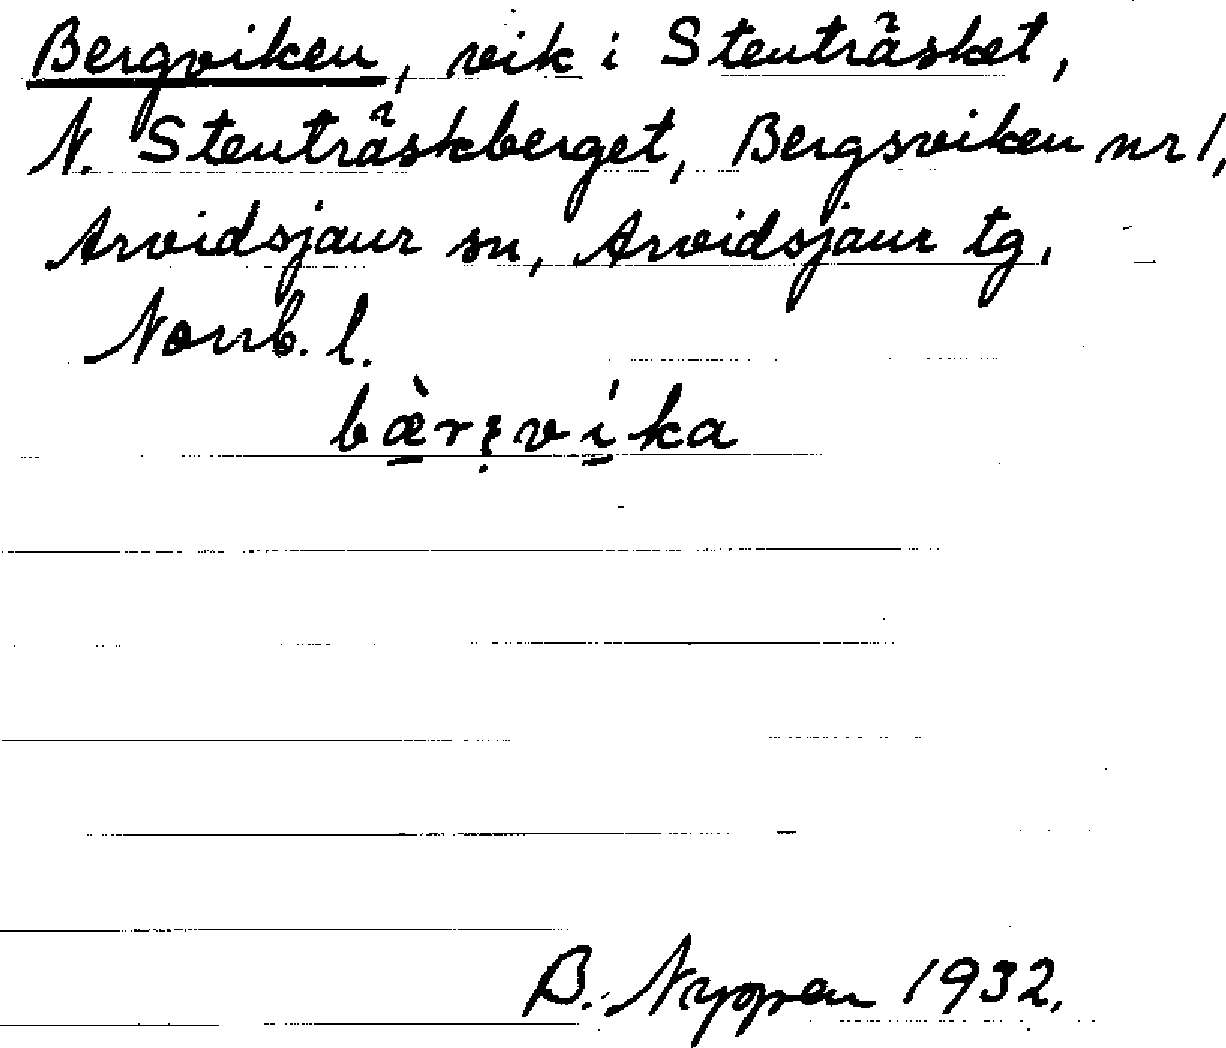 Bergviken, vik i Stenträsket,
N. Stenträskberget, Bergsviken nr 1,
Arvidsjaur sn, Arvidsjaur tg,
Norrb. l.
B. Nyppen 1932.